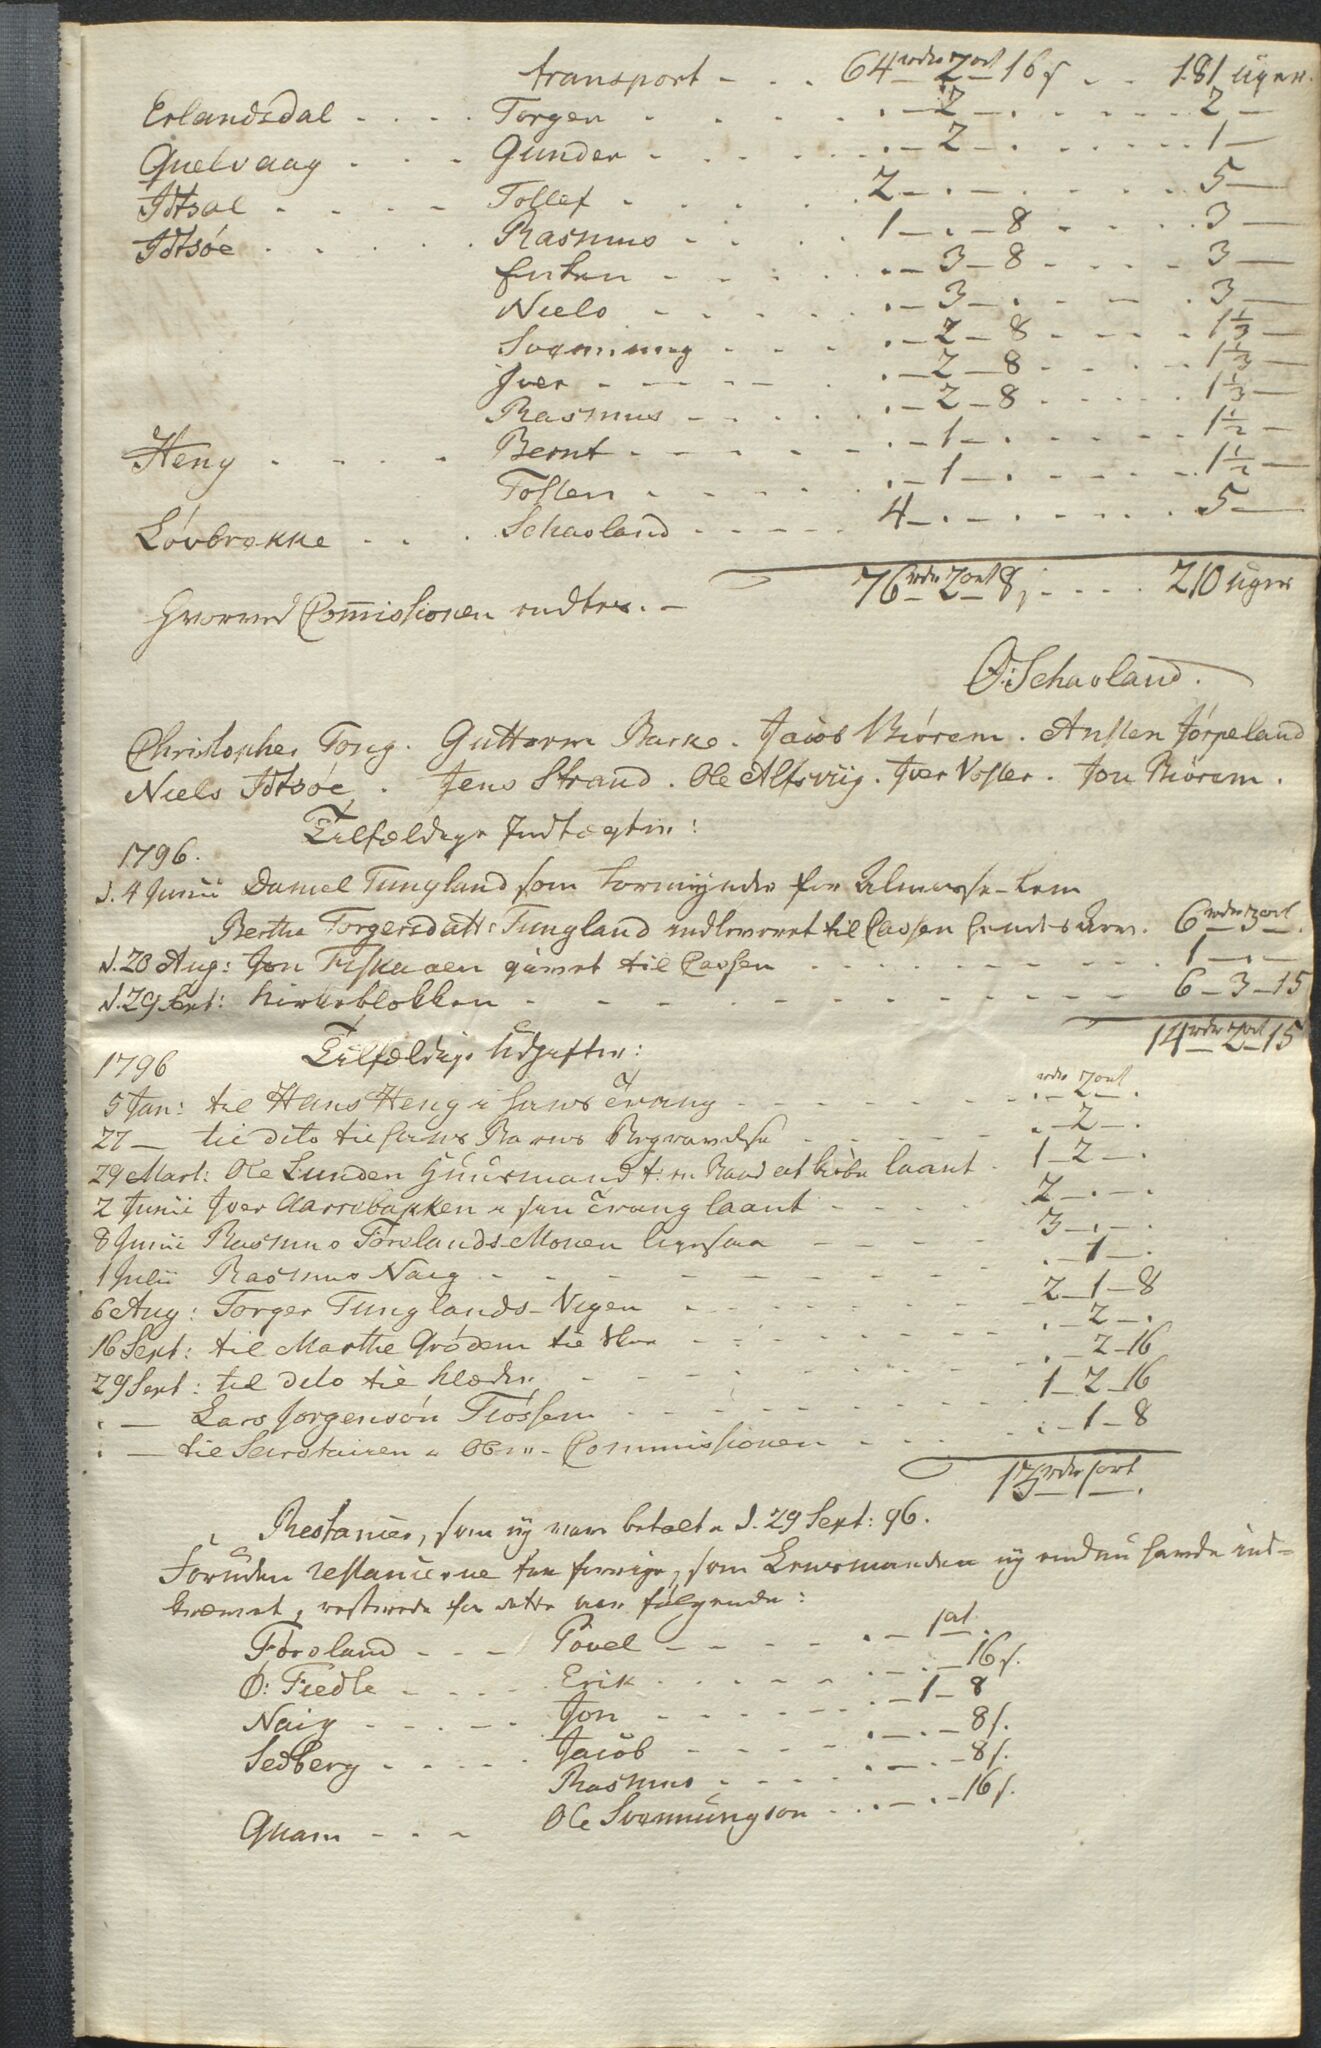 transport - - - 64 rdr 2 ort 16 s - - 181 uger.
Erlandsdal - - - - Torger - - - - - . - 2 - . - - - - - 2 -
Quelvaag - - - Gunder - - - - - . - 2 - . - - - - - 1 -
Idtsal - - - - Tollef - - - - - 2 - . - . - - - - 5 -
Idtsøe - - - - - Rasmus - - - - 1 - . - 8 - - - - 3 -
Enken - - - - . - 3 - 8 - - - - 3 -
Niels - - - - - . - 3 - . - - - - 3 -
Svenning - - - - . - 2 - 8 - - - - 1 1/3 -
Iver - - - - - . - 2 - 8 - - - - 1 1/3 -
Rasmus - - - - - . - 2 - 8 - - - - 1 1/3 -
Heng - - - - Bernt - - - - - . - 1 - . - - - - 1 1/2 -
Tosten - - - - - . - 1 - . - - - - 1 1/2 -
Løvbrække - - - Schaoland - - - - - 4 - . - . - - - - 5 -
76 rdr 2 ort 8 s - - - - 210 uger
Hvorved Commissionen endtes. -
O: Schaoland.
Christopher Tøng. Guttorm Barke. Jacob Biørem. Austen Jørpeland
Niels Idtsøe. Jens Strand. Ole Alfsviig. Iver Voster. Jon Biørem.
Tilfældige Indtægter:
1796.
d. 4 Junii Daniel Tungland som Formynder for Almisse-Lem
Bertha Torgersdatt: Tungland indleveret til Cassen hendes Arv. 6 rdr 3 ort.
d. 20 Aug: Jon Fiskaaen givet til Cassen - - - - - - - - 1 - . -
d. 29 Sept: Kirkeblokken - - - - - - - - - - - 6 - 3 - 15
14 rdr 2 ort 15
1796 Tilfældige Udgifter:
5 Jan: til Hans Heng i hans Trang - - - - - - - . - 2 ort .
27 - til dito til hans Barns Begravelse - - - - - . - 2 - .
29 Mart: Ole Lunden Huusmand t: en Baad at kiøbe laant - 1 - 2 - .
2 Junii Iver Aarrebakken i sin Trang laant - - - - 2 - . - .
8 Junii Rasmus Førelands-Monen ligesaa - - - - 3 - . - .
1 Julii Rasmus Naig - - - - - - - - - . - 1 - .
6 Aug: Torger Tunglands-Vigen - - - - - - - 2 - 1 - 8
16 Sept: til Marthe Grødem til Skoe - - - - - - . - 2 - .
29 Sept: til dito til Klæder - - - - - - - - . - 2 - 16
. - Lars Jorgensøn Tiøssem - - - - - - - 1 - 2 - 16
. - til Secretairen i Over-Commissionen - - - - . - 1 - 8
13 rdr 1 ort.
Restancer, som ey vare betalte d. 29 Sept: 96.
Foruden restancerne for forrige, som Lensmanden ey endnu havde ind-
kræwet, resterede for dette Aar følgende:
Førsland - - - Povel - - - - - . - 1 ort.
Ø: Fiedle - - - - Erik - - - - - . - . - 16 s.
Naig - - - - - Jon - - - - - - . - 1 - 8
Sedberg - - - - - Jacob - - - - - . - . - 8 s.
Rasmus - - - - . - . - 8 s.
Quam - - - Ole Svenningson - - . - . - 16 s.